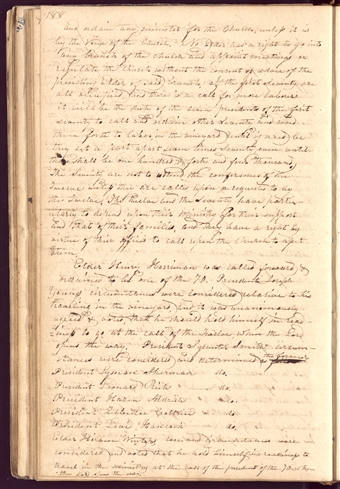 188
and ordain any minister for the Church, unless it is
by the voice of the Church. No Elder has a right to go into
any branch of the church and appoint meetings or
regulate the Church without the consent or advice of the
presiding Elder of said branch. If the first Seventy are
all employed, and there is a call for more labourers
it will be the duty of the seven presidents of the first
seventy to call and ordain other Seventy and send
them forth to labor in the vineyard until if need be
they set apart seven times seventy even until
there shall be one hundred & forty and four thousand,
The Seventy are not to attend the conferences of the
Twelve unless they are called upon or requested to by
the Twelve. The Twelve and the Seventy have partic-
ularly to depend upon their ministry for their support
and that of their families, and they have a right by
virtue of their offices to call upon the Church to assist
them.
Elder Henry Herriman was called forward, &
ordained to be one of the 70. President Joseph
Young's circumstances were considered relative to his
travelling in the vineyard, and it was unanimously
agreed & voted that he should hold himself in read-
iness to go at the call of the Twelve when the Lord
opens the way. President Sylvester Smith's circum-
stances were considered and determined the former
President Lyman Sherman do.
President Leonard Rich do.
President Hazen Aldrich do.
President Zebedee Coltrin do.
President Levi Hancock do.
Elder Hiram Winters circumstances were
considered and voted that he hold himself in readiness to
travel in the ministry at the call of the president of the 70 as the
the way.